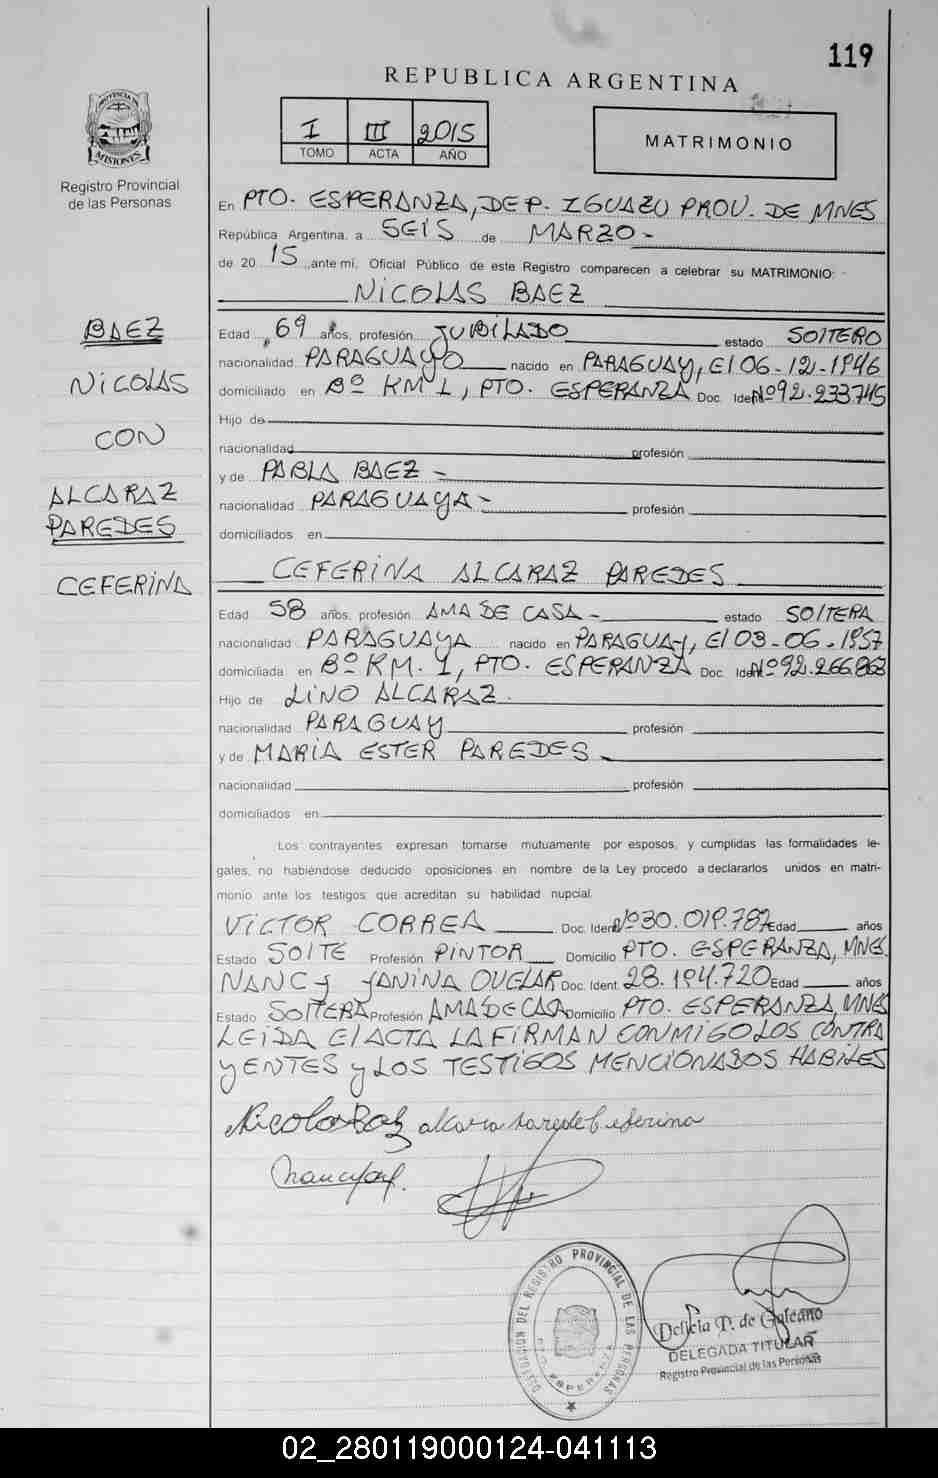 119
REPUBLICA ARGENTINA
I III 2015
TOMO ACTA AÑO
MATRIMONIO
PROVINCIA DE
MISIONES
Registro Provincial
de las Personas
En PTO. ESPERANZA, DEP. IGUAZU PROV. DE MNES
República Argentina, a SEIS de MARZO -
de 20 15 ,ante mi, Oficial Público de este Registro comparecen a celebrar su MATRIMONIO:
NICOLAS BAEZ
Edad 69 años, profesión JUBILADO estado SOLTERO
nacionalidad PARAGUAYO nacido en PARAGUAY, El 06-12-1946
domiciliado en Bº KM 1, PTO. ESPERANZA Doc. Ident Nº 92.233.745
Hijo de
nacionalidad profesión
y de PABLA BAEZ -
nacionalidad PARAGUAYA - profesión
domiciliados en
BAEZ
NICOLAS
CON
ALCARAZ
PAREDES
CEFERINA
CEFERINA ALCARAZ PAREDES
Edad 58 años, profesión AMA DE CASA - estado SOLTERA
nacionalidad PARAGUAYA nacido en PARAGUAY, El 03-06-1957
domiciliada en Bº KM. 1, PTO. ESPERANZA Doc. Ident Nº 92.266.863
Hijo de LINO ALCARAZ.
nacionalidad PARAGUAY profesión
y de MARIA ESTER PAREDES
nacionalidad profesión
domiciliados en
Los contrayentes expresan tomarse mutuamente por esposos, y cumplidas las formalidades le-
gales, no habiéndose deducido oposiciones en nombre de la Ley procedo a declararlos unidos en matri-
monio ante los testigos que acreditan su habilidad nupcial.
VICTOR CORREA Doc. Ident Nº 30.019.787 Edad años
Estado SOLTE Profesión PINTOR Domicilio PTO. ESPERANZA, MNES.
NANCY YANINA OVELAR Doc. Ident. 28.194.720 Edad años
Estado SOLTERA Profesión AMA DE CASA Domicilio PTO. ESPERANZA, MNES
LEIDA El ACTA LA FIRMAN CONMIGO LOS CONTRA
YENTES y LOS TESTIGOS MENCIONADOS HABILES
Nicolas Baez
DELEGACION DEL REGISTRO PROVINCIAL DE LAS PERSONAS
PTO. ESPERANZA
Delicia P. de Galeano
DELEGADA TITULAR
Registro Provincial de las Personas
02_280119000124-041113